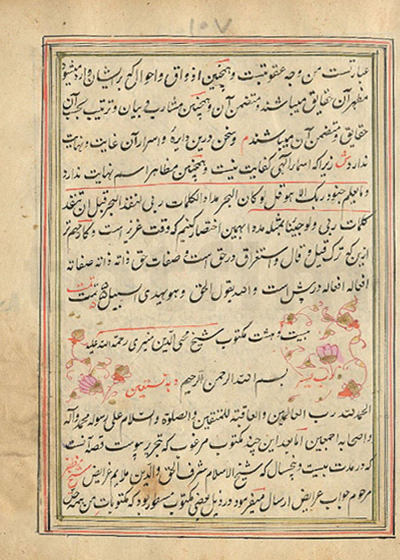 ۱۰۷
عبارتست من وجه عقوبتست و همچنین اذواق و احوال که بریشان وارد میشود
مظهر آن حقایق میباشند و متضمن آن و همچنین مشارب در بیان و ترتیب بحسب آن
حقایق و متضمن آن میباشند و سخن درین دایره و اسرار آن غایت و نهایت
ندارد زیرا که اسماء الهی را نهایت نیست و همچنین مظاهر اسم نهایت ندارد
و ما یعلم جنود ربک الا هو قل لو کان البحر مدادا لکلمات ربی لنفد البحر قبل ان تنفد
کلمات ربی و لو جئنا بمثله مددا بهمین اختصار کنیم که وقت عزیز است و کار مهمتر
ازین که ترک قیل و قال و استغراق در حق است صفات حق ذاته ذاته صفاته
افعاله افعاله در پیش است و الله یقول الحق و هو یهدی السبیل تمت
بیست و هشت مکتوب شیخ یحیی الدین منیری رحمة الله علیه
رب یسر بسم الله الرحمن الرحیم و به نستعین
الحمد لله رب العالمین و العاقبة للمتقین و الصلوة و السلام علی رسوله محمد و آله
و اصحابه اجمعین اما بعد این چند مکتوب مرغوب که تحریر پیوست قصه آنست
که در مدت بیست و پنج سال که شیخ الاسلام شرف الحق و الدین ملایم عرایض شیخ مظفر
مرحوم جواب عرایض ارسال میفرمود در ذیل بعضی مکتوب مسطور بود که مکتوبات من همه